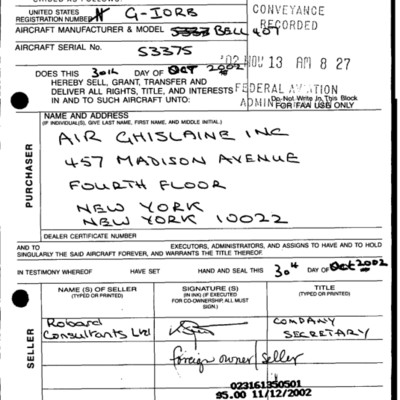 UNITED STATES
REGISTRATION NUMBER N G-IORB
AIRCRAFT MANUFACTURER & MODEL 5333 BELL 407
AIRCRAFT SERIAL No.
53375
DOES THIS 30th DAY OF OCT 2002
HEREBY SELL, GRANT, TRANSFER AND
DELIVER ALL RIGHTS, TITLE, AND INTERESTS
IN AND TO SUCH AIRCRAFT UNTO:
CONVEYANCE
RECORDED
'02 NOV 13 AM 8 27
FEDERAL AVIATION
Do Not Write In This Block
FOR FAA USE ONLY
PURCHASER
NAME AND ADDRESS
(IF INDIVIDUAL(S), GIVE LAST NAME, FIRST NAME, AND MIDDLE INITIAL.)
AIR GHISLAINE INC
457 MADISON AVENUE
FOURTH FLOOR
NEW YORK
NEW YORK 10022
DEALER CERTIFICATE NUMBER
AND TO EXECUTORS, ADMINISTRATORS, AND ASSIGNS TO HAVE AND TO HOLD
SINGULARLY THE SAID AIRCRAFT FOREVER, AND WARRANTS THE TITLE THEREOF.
IN TESTIMONY WHEREOF HAVE SET HAND AND SEAL THIS 30th DAY OF Oct 2002
SELLER
NAME (S) OF SELLER
(TYPED OR PRINTED)
SIGNATURE (S)
(IN INK) (IF EXECUTED
FOR CO-OWNERSHIP, ALL MUST
SIGN.)
TITLE
(TYPED OR PRINTED)
Robard
Consultants Ltd
COMPANY
SECRETARY
foreign owner/seller
023161350501
95.00 11/12/2002